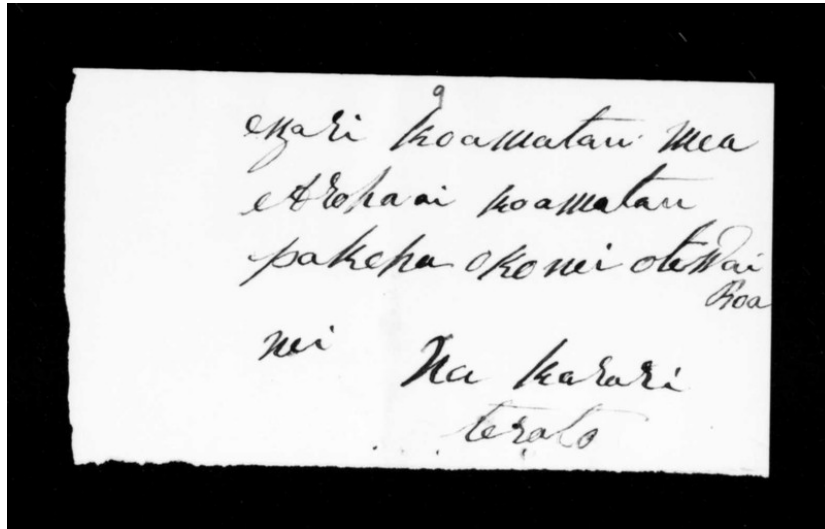 9
engari koamatau mea
e Arohaai koamatau
pakeha okonei otewai
Roa
nei Na karari
terato